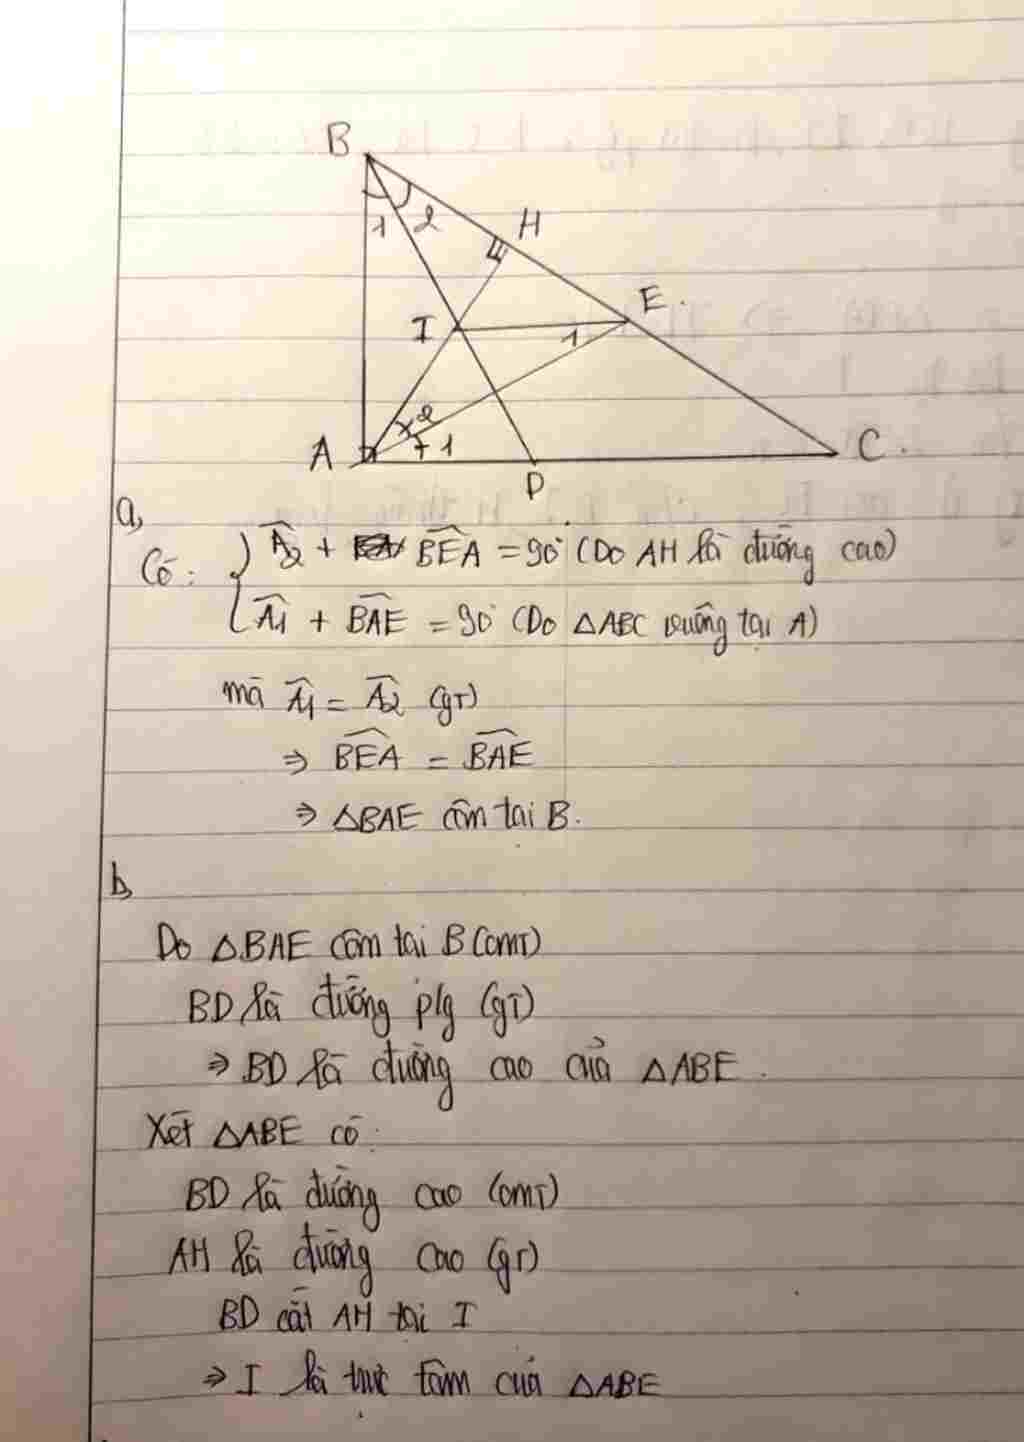 B
1 2
H
E.
I
1
2
1
A
C.
D
a,
Có: Â2 + BÊA = 90° (Do AH là đường cao)
Â1 + BAE = 90° (Do △ABC vuông tại A)
mà Â1 = Â2 (gt)
⇒ BEA = BAE
⇒ △BAE cân tại B.
b,
Do △BAE cân tại B (cmt)
BD là đường p/g (gt)
⇒ BD là đường cao của △ABE.
Xét △ABE có:
BD là đường cao (cmt)
AH là đường cao (gt)
BD cắt AH tại I
⇒ I là trực tâm của △ABE